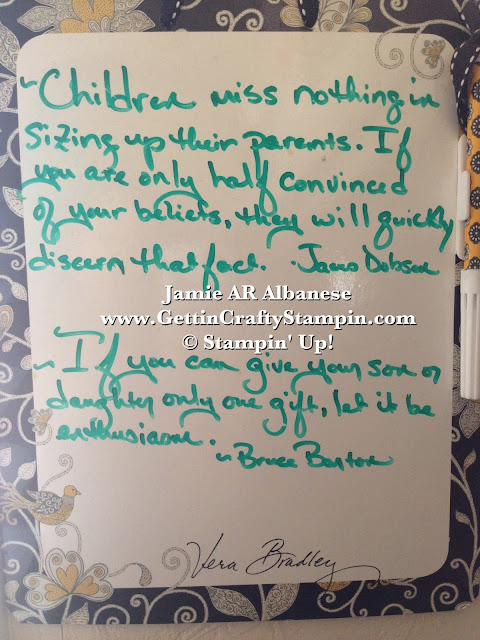 ~Children miss nothing in
sizing up their parents. If
you are only half convinced
of your beliefs, they will quickly
discern that fact. ·James Dobson
Jamie AR Albanese
www.GettinCraftyStampin.com
© Stampin' Up!
~If you can give your son or
daughter only one gift, let it be
enthusiasm.
~Bruce Barton
Vera Bradley